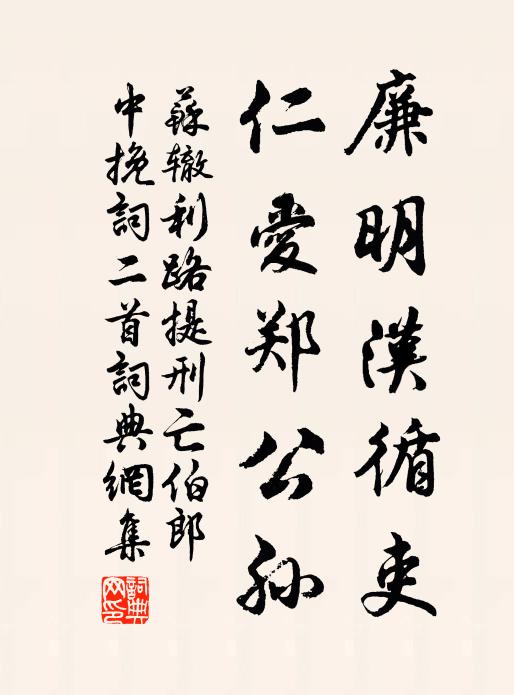 廉明漢循吏
仁愛郑公孙
蘇辙利路提刑亡伯郎
中挽詞二首詞典網集
詞典网印